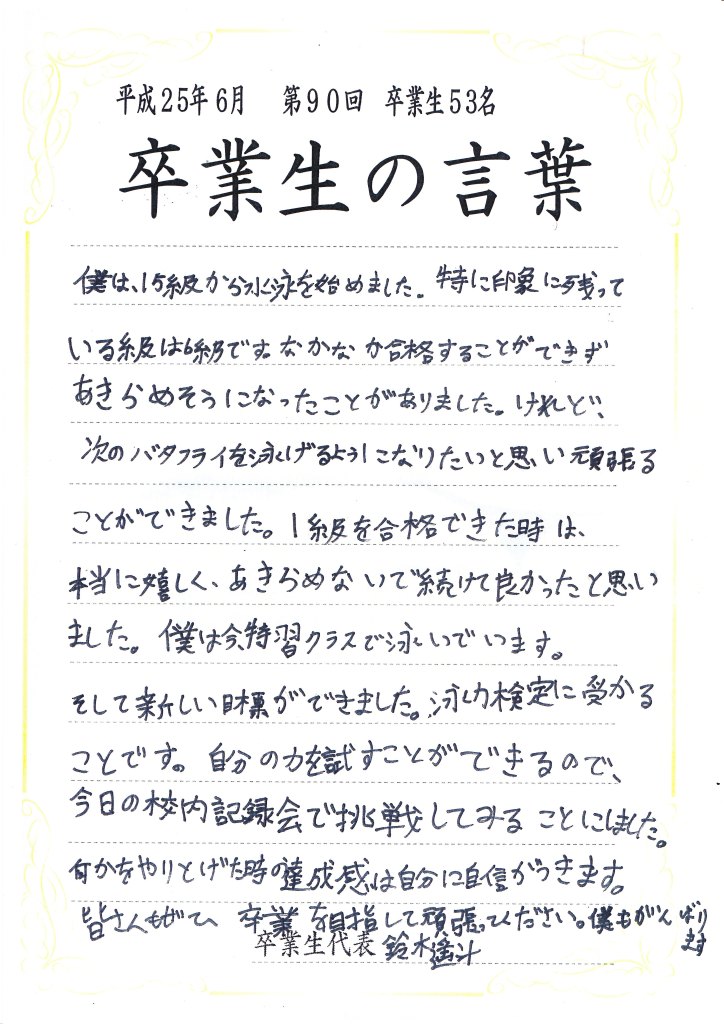 平成25年6月　第90回　卒業生53名
卒業生の言葉
僕は、15級から水泳を始めました。特に印象に残って
いる級は6級です。なかなか合格することができず
あきらめそうになったことがありました。けれど、
次のバタフライを泳げるようになりたいと思い頑張る
ことができました。1級を合格できた時は、
本当に嬉しく、あきらめないで続けて良かったと思い
ました。僕は今、特習クラスで泳いでいます。
そして新しい目標ができました。泳力検定に受かる
ことです。自分の力を試すことができるので、
今日の校内記録会で挑戦してみることにしました。
何かをやりとげた時の達成感は自分に自信がつきます。
皆さんもぜひ卒業を目指して頑張ってください。僕もがんばり
ます
卒業生代表 鈴木遥斗